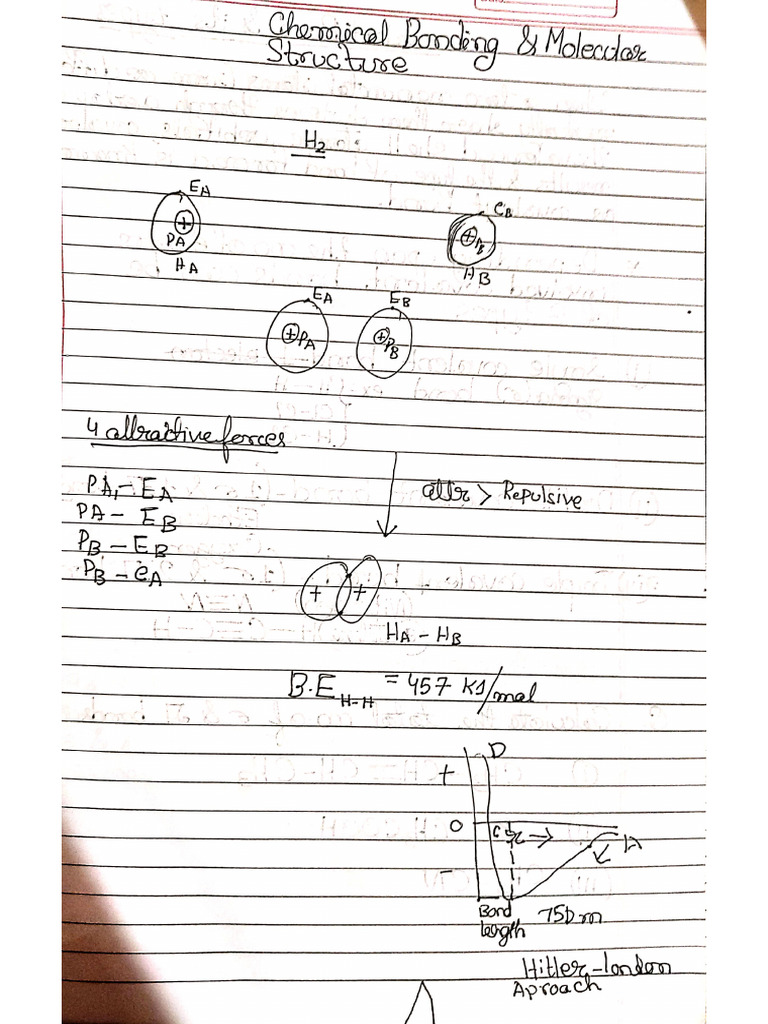 Chemical Bonding & Molecular
Structure
H2
EA
+
PA
HA
eB
+
HB
EA
+PA
EB
+PB
4 attractive forces
PA - EA
PA - EB
PB - EB
PB - eA
attr > Repulsive
+ +
HA - HB
B.E H-H = 457 KJ/mol
D
+
O
C
A
-
Bond
length
75Dm
Hitler-london
Aproach